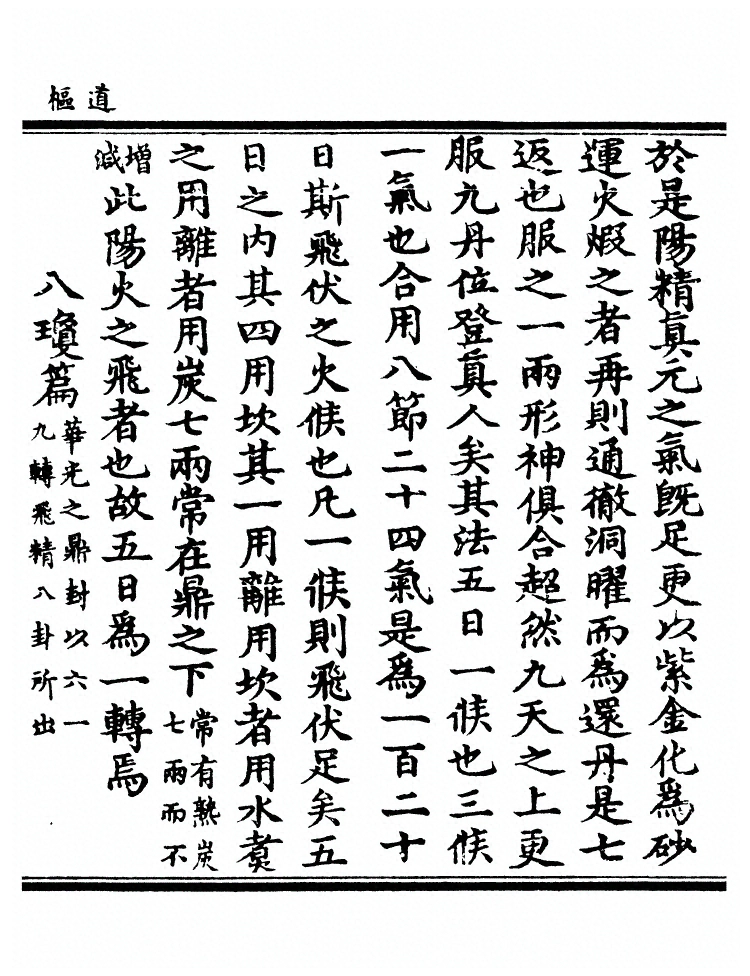 道樞
於是陽精眞元之氣旣足更以紫金化爲砂
運火煆之者再則通徹洞曜而爲還丹是七
返也服之一兩形神俱合超然九天之上更
服九丹位登眞人矣其法五日一候也三候
一氣也合用八節二十四氣是爲一百二十
日斯飛伏之火候也凡一候則飛伏足矣五
日之内其四用坎其一用離用坎者用水煑
之用離者用炭七兩常在鼎之下常有熟炭七兩而不
增減此陽火之飛者也故五日爲一轉焉
八瓊篇華光之鼎封以六一九轉飛精八卦所出